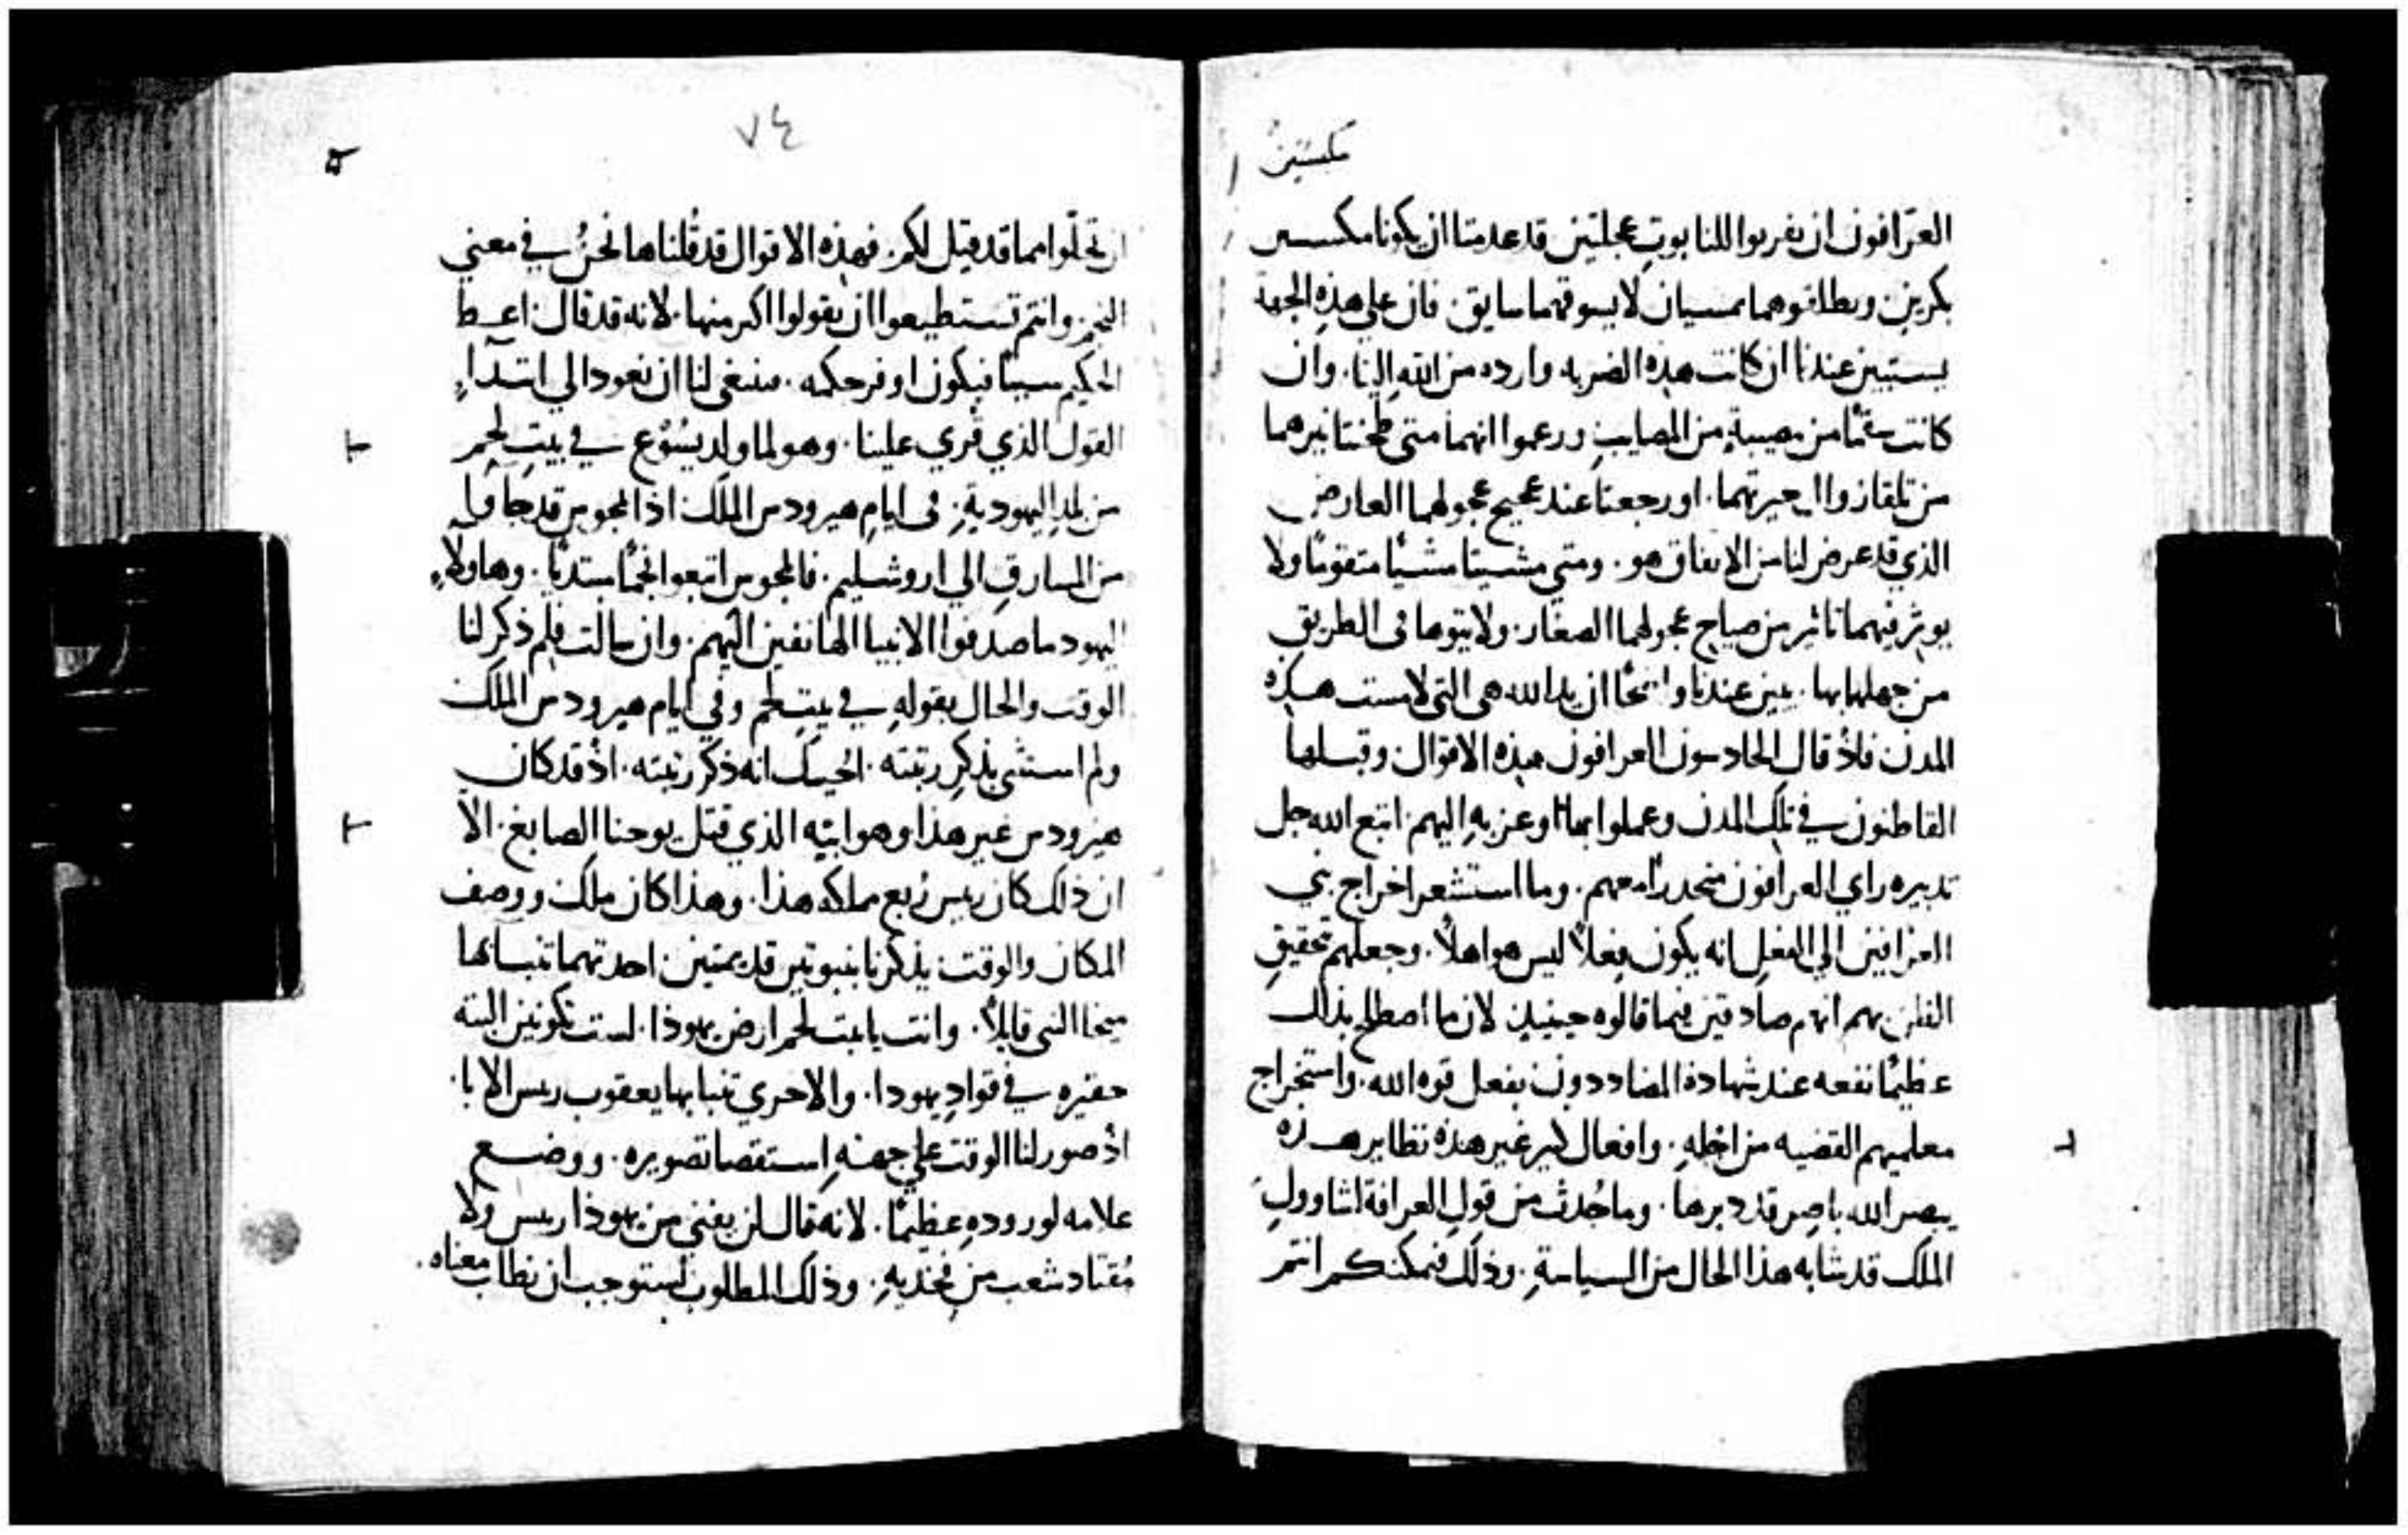 مكسيين
العرّافون ان يقربوا للتابوت عجلتين قد عدمتا ان يكونا مكسيين
بكريين ويطلقوهما تمسيان لا يسوقهما سايق. فان على هذه الجهة
يستبين عندنا ان كانت هذه الضربه وارده من الله الينا. وان
كانت سقمًا من مصيبةٍ من المصايب وزعموا انهما متى طحنتا نيرهما
من تلقا ذوال حيرتهما. او رجعتا عند عجيج عجولهما العارض
الذي قد عرض لنا من الاتفاق هو. ومتى مشيتا مشيًا متقومًا ولا
يوثر فيهما تاثير من صياح عجولهما الصغار. ولا يتوها في الطريق
من جهلهما بها. يبين عندنا واضحًا ان يد الله هي التي لامست هذه
المدن فاذ قال الحادسون العرافون هذه الاقوال وقبلها
القاطنون في تلك المدن وعملوا بما اوعز به اليهم. اتبع الله جل
تدبيره راي العرافون منحدرًا معهم. وما استشعر اخراج بي
العرافين الي الفعل انه يكون فعلاً ليس هو اهلاً. وجعلهم تحقيق
الظن بهم انهم صادقين فيما قالوه حينيذٍ لان ما اصطلح بذلك
عظيمًا نفعه عند شهادة المضاددون بفعل قوة الله. واستخراج
معلميهم القضيه من اجله. وافعال كثير غير هذه نظاير هذه
يبصر الله باصر قد دبرها. وما حُدث من قول العرافة لشاوول
الملك قد شابه هذا الحال من السياسةِ. وذلك فيمكنكم انتم
٧٤
ان تحلّوا مما قد قيل لكم. فهذه الاقوال قد قلناها نحنُ في معني
النجم. وانتم تستطيعوا ان تقولوا اكثر منها. لانه قد قال: اعط
الحكيم سببًا فيكون اوفر حكمه. فينبغي لنا ان نعود الي ابتداءِ
القول الذي قُري علينا. وهو لما ولد يسُوع في بيت لحم
من بلد اليهوديةِ. في ايام هيرودس الملك اذا المجوس قد جاوا
من المشارق الي اروشليم. فالمجوس اتبعوا نجمًا مبتديًا. وهاولاءِ
اليهود ما صدقوا الانبيا الهاتفين اليهم. وان سالت فلم ذكر لنا
الوقت والحال بقوله في بيت لحم وفي ايام هيرودس الملك
ولم استثنى بذكر رتبته. اجيبك انه ذكر رتبته. اذ قد كان
هيرودس غير هذا وهو ابنه الذي قتل يوحنا الصابغ. الا
ان ذلك كان ريس رُبع مملكه هذا. وهذا كان ملك ووصف
المكان والوقت يذكرنا بنبوتين قديمتين. احدتهما تنبا بها
ميخا النبي قايلاً. وانت يا بيت لحم ارض يهوذا. لست تكونين البته
حقيره في قواد يهودا. والاخري تنبا بها يعقوب ريس الابا.
اذ صور لنا الوقت على جهة استقصا تصويره. ووضع
علامه لوروده عظيمًا. لانه قال لن يفني من يهوذا ريس ولا
مُقتاد شعب من فخذيهِ. وذلك المطلوب يستوجب ان نطلب معناه.